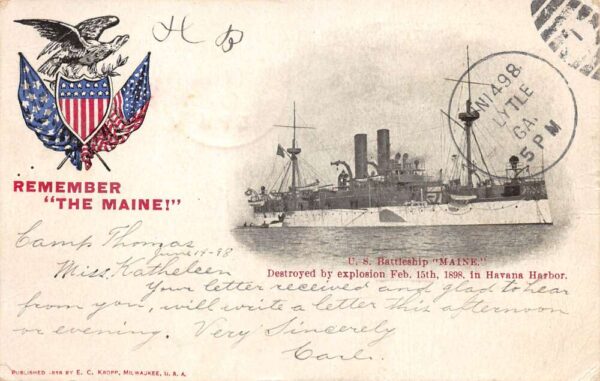 H B
JUN 14 98
LYTLE
GA.
5 PM
1
REMEMBER
"THE MAINE!"
U. S. Battleship "MAINE."
Destroyed by explosion Feb. 15th, 1898, in Havana Harbor.
Camp Thomas
June 14-98
Miss. Katheleen
Your letter received and glad to hear
from you, will write a letter this afternoon
or evening. Very Sincerely
Carl.
PUBLISHED 1898 BY E. C. KROPP, MILWAUKEE, U. S. A.